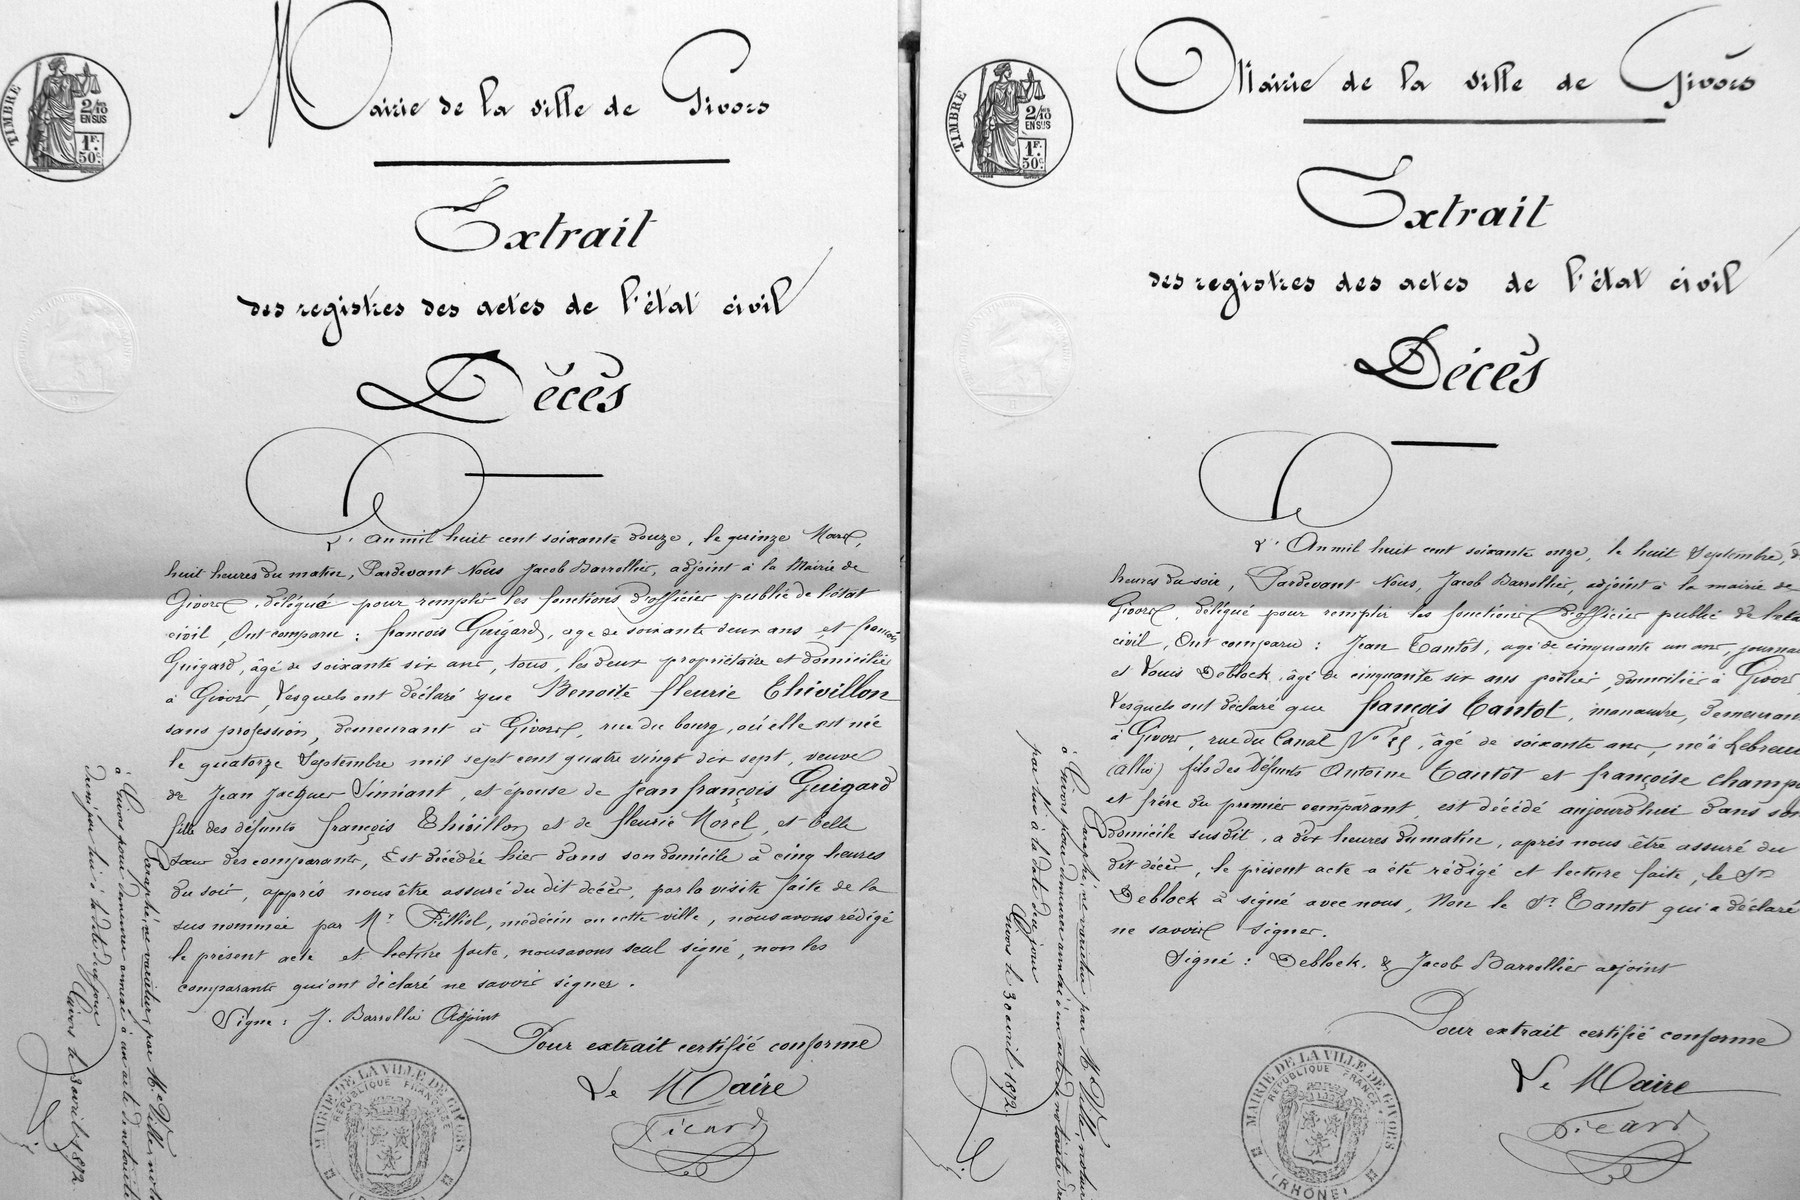 TIMBRE
2/10
EN SUS
1F.
50c.
Mairie de la ville de Givors
Extrait
des registres des actes de l'état civil
Décès
L'An mil huit cent soixante douze, le quinze Mars,
huit heures du matin, Pardevant Nous Jacob Barrollier, adjoint à la Mairie de
Givors, délégué pour remplir les fonctions d'officier public de l'état
civil, Ont comparu : françois Guigard, agé de soixante deux ans, et françois
Guigard, âgé de soixante six ans, tous, les deux propriétaire et domicilié
à Givors, Lesquels ont déclaré que Benoite fleurie Thivillon
sans profession, demeurant à Givors, rue du bourg, où elle est née
le quatorze Septembre mil sept cent quatre vingt dix sept, veuve
de Jean Jacques Simiant, et épouse de Jean françois Guigard
fille des défunts françois Thivillon et de fleurie Morel, et belle
sœur des comparants, Est décédée hier dans son domicile à cinq heures
du soir, apprès nous être assuré du dit décès, par la visite faite de la
sus nommée par Mr. Filliol, médecin en cette ville, nous avons rédigé
le présent acte et lecture faite, nous avons seul signé, non les
comparants qui ont déclaré ne savoir signer.
Signé : J. Barrollier Adjoint
Pour extrait certifié conforme
Le Maire
Picard
MAIRIE DE LA VILLE DE GIVORS
RÉPUBLIQUE FRANÇAISE
Paraphé, ne varietur, par Me Ville, not
à Givors pour demeurer annexé à un acte de notoriété
dressé par lui à la date de ce jour
Givors le 30 avril 1892
TIMBRE
2/10
EN SUS
1F.
50c.
Mairie de la ville de Givors
Extrait
des registres des actes de l'état civil
Décès
L'An mil huit cent soixante onze, le huit Septembre, d
heures du soir, Pardevant Nous, Jacob Barrollier, adjoint à la mairie de
Givors, délégué pour remplir les fonctions d'officier public de l'éta
civil, Ont comparu : Jean Tantôt, agé de cinquante un ans, journa
et Louis Deblock, âgé de cinquante six ans potier, domiciliés à Givors
Lesquels ont déclaré que françois Tantot, manœuvre, demeurant
à Givors, rue du Canal No 15, âgé de soixante ans, né à Lebreu
(allier) fils des défunts Antoine Tantôt et françoise Champ
et frère du premier comparant, est décédé aujourd'hui dans son
domicile susdit, à dix heures du matin, aprés nous être assuré du
dit décès, le présent acte a été rédigé et lecture faite, le Sr
Deblock à signé avec nous, Non le Sr. Tantot qui a déclaré
ne savoir signer.
Signé : Deblock. & Jacob Barrollier adjoint
Pour extrait certifié conforme
Le Maire
Picard
MAIRIE DE LA VILLE DE GIVORS
RÉPUBLIQUE FRANÇAISE
(RHÔNE)
Paraphé, ne varietur par Me Ville, notaire
à Givors pour demeurer annexé à un acte de notoriété dre
par lui à la date de ce jour
Givors le 30 avril 1892